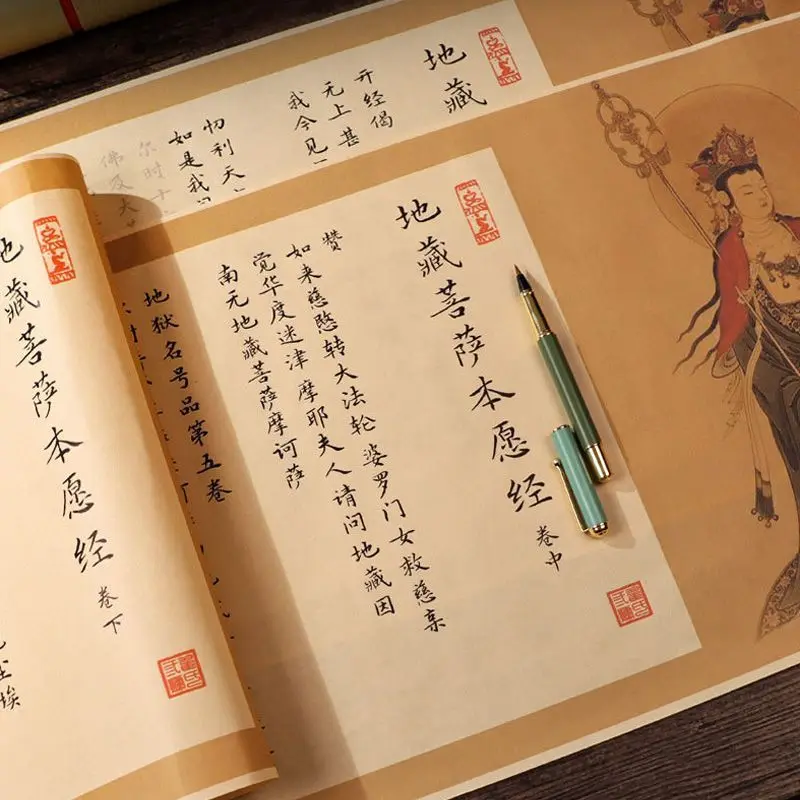 地藏
开经偈
无上甚
我今见
忉利天
如是我
尔时十
佛及大
地藏菩萨本愿经 卷中
赞
如来慈愍转大法轮婆罗门女救慈亲
觉华度迷津摩耶夫人请问地藏因
南无地藏菩萨摩诃萨
地狱名号品第五卷
地藏菩萨本愿经 卷下
埃